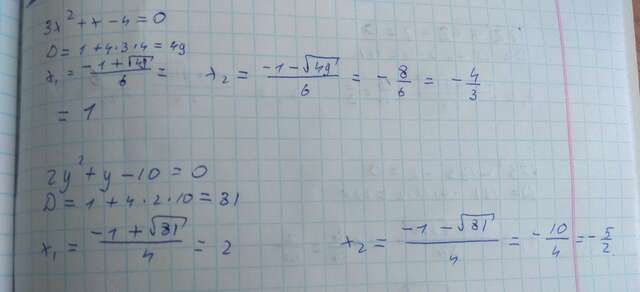 3x² + x − 4 = 0
D = 1 + 4·3·4 = 49
x₁ = (−1 + √49)/6 = x₂ = (−1 − √49)/6 = −8/6 = −4/3
= 1
2y² + y − 10 = 0
D = 1 + 4·2·10 = 81
x₁ = (−1 + √81)/4 = 2 x₂ = (−1 − √81)/4 = −10/4 = −5/2